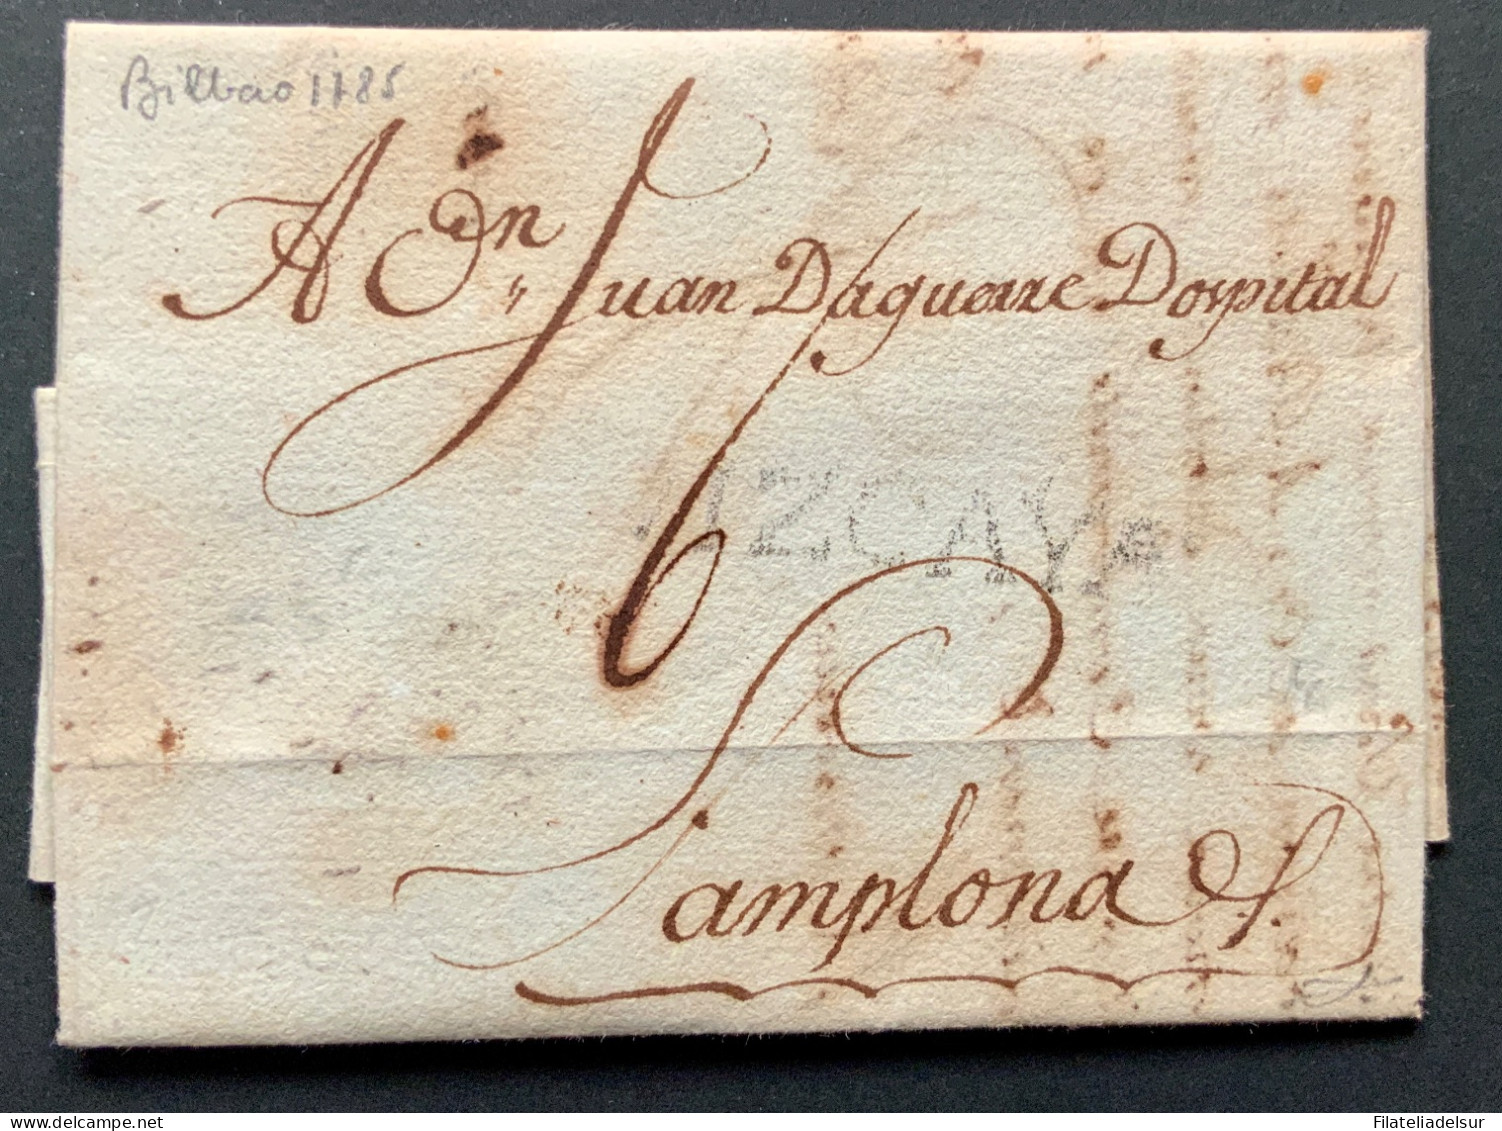 Bilbao 1785
A Dn Juan Daguerre Dospital
6
VIZCAYA
Pamplona
Filateliadelsur
https://www.delcampe.net